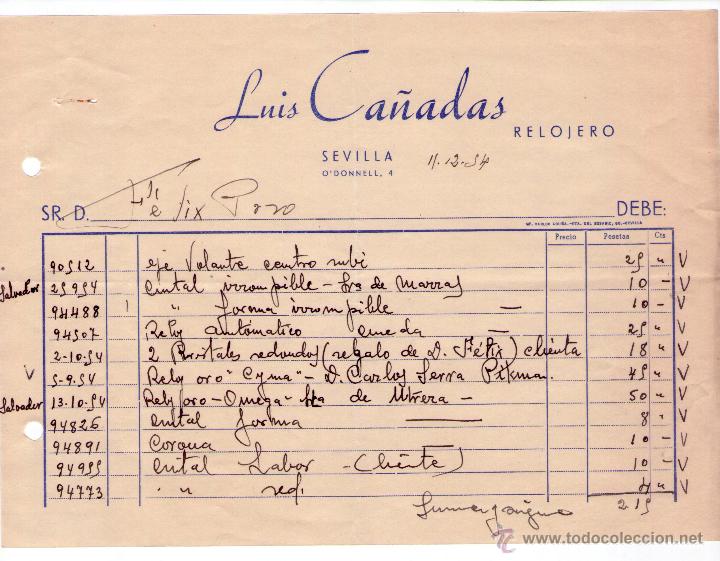 Luis Cañadas
RELOJERO
SEVILLA
O'DONNELL, 4
11-12-54
SR. D. Félix Pozo DEBE:
Precio Pesetas Cts
90512 eje Volante centro rubi 25 " V
Salvador 25954 Cristal irrompible - de Marras 10 - V
94488 " forma irrompible — 10 - V
94507 Reloj automatico — 25 " V
2-10-54 2 Cristales redondos (regalo de D. Félix) clienta 18 " V
V 5-9-54 Reloj oro "Cyma" - D. Carlos Serra Pikman 45 " V
Salvador 13-10-54 Reloj oro - Omega de Utrera - 50 " V
94826 cristal forma — 8 " V
94891 Corona — 10 - V
94955 cristal Labor - (Cliente) 10 - V
94773 " " red. 4 " V
215
www.todocoleccion.net